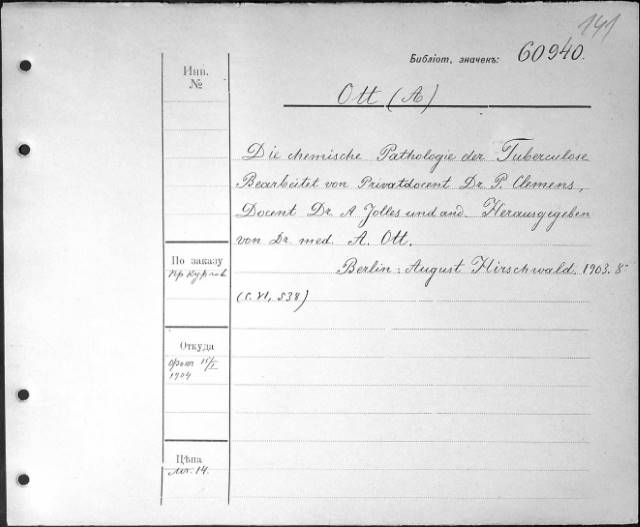 141
Библіот. значекъ: 60940.
Инв.
№
Ott (A)
Die chemische Pathologie der Tuberculose
Bearbeitet von Privatdocent Dr. P. Clemens,
Docent Dr. A Jolles und and. Herausgegeben
von Dr. med. A. Ott.
Berlin: August Hirschwald. 1903. 8°
(С. VI, 538)
По заказу
Откуда
1904
Цѣна
мк: 14.